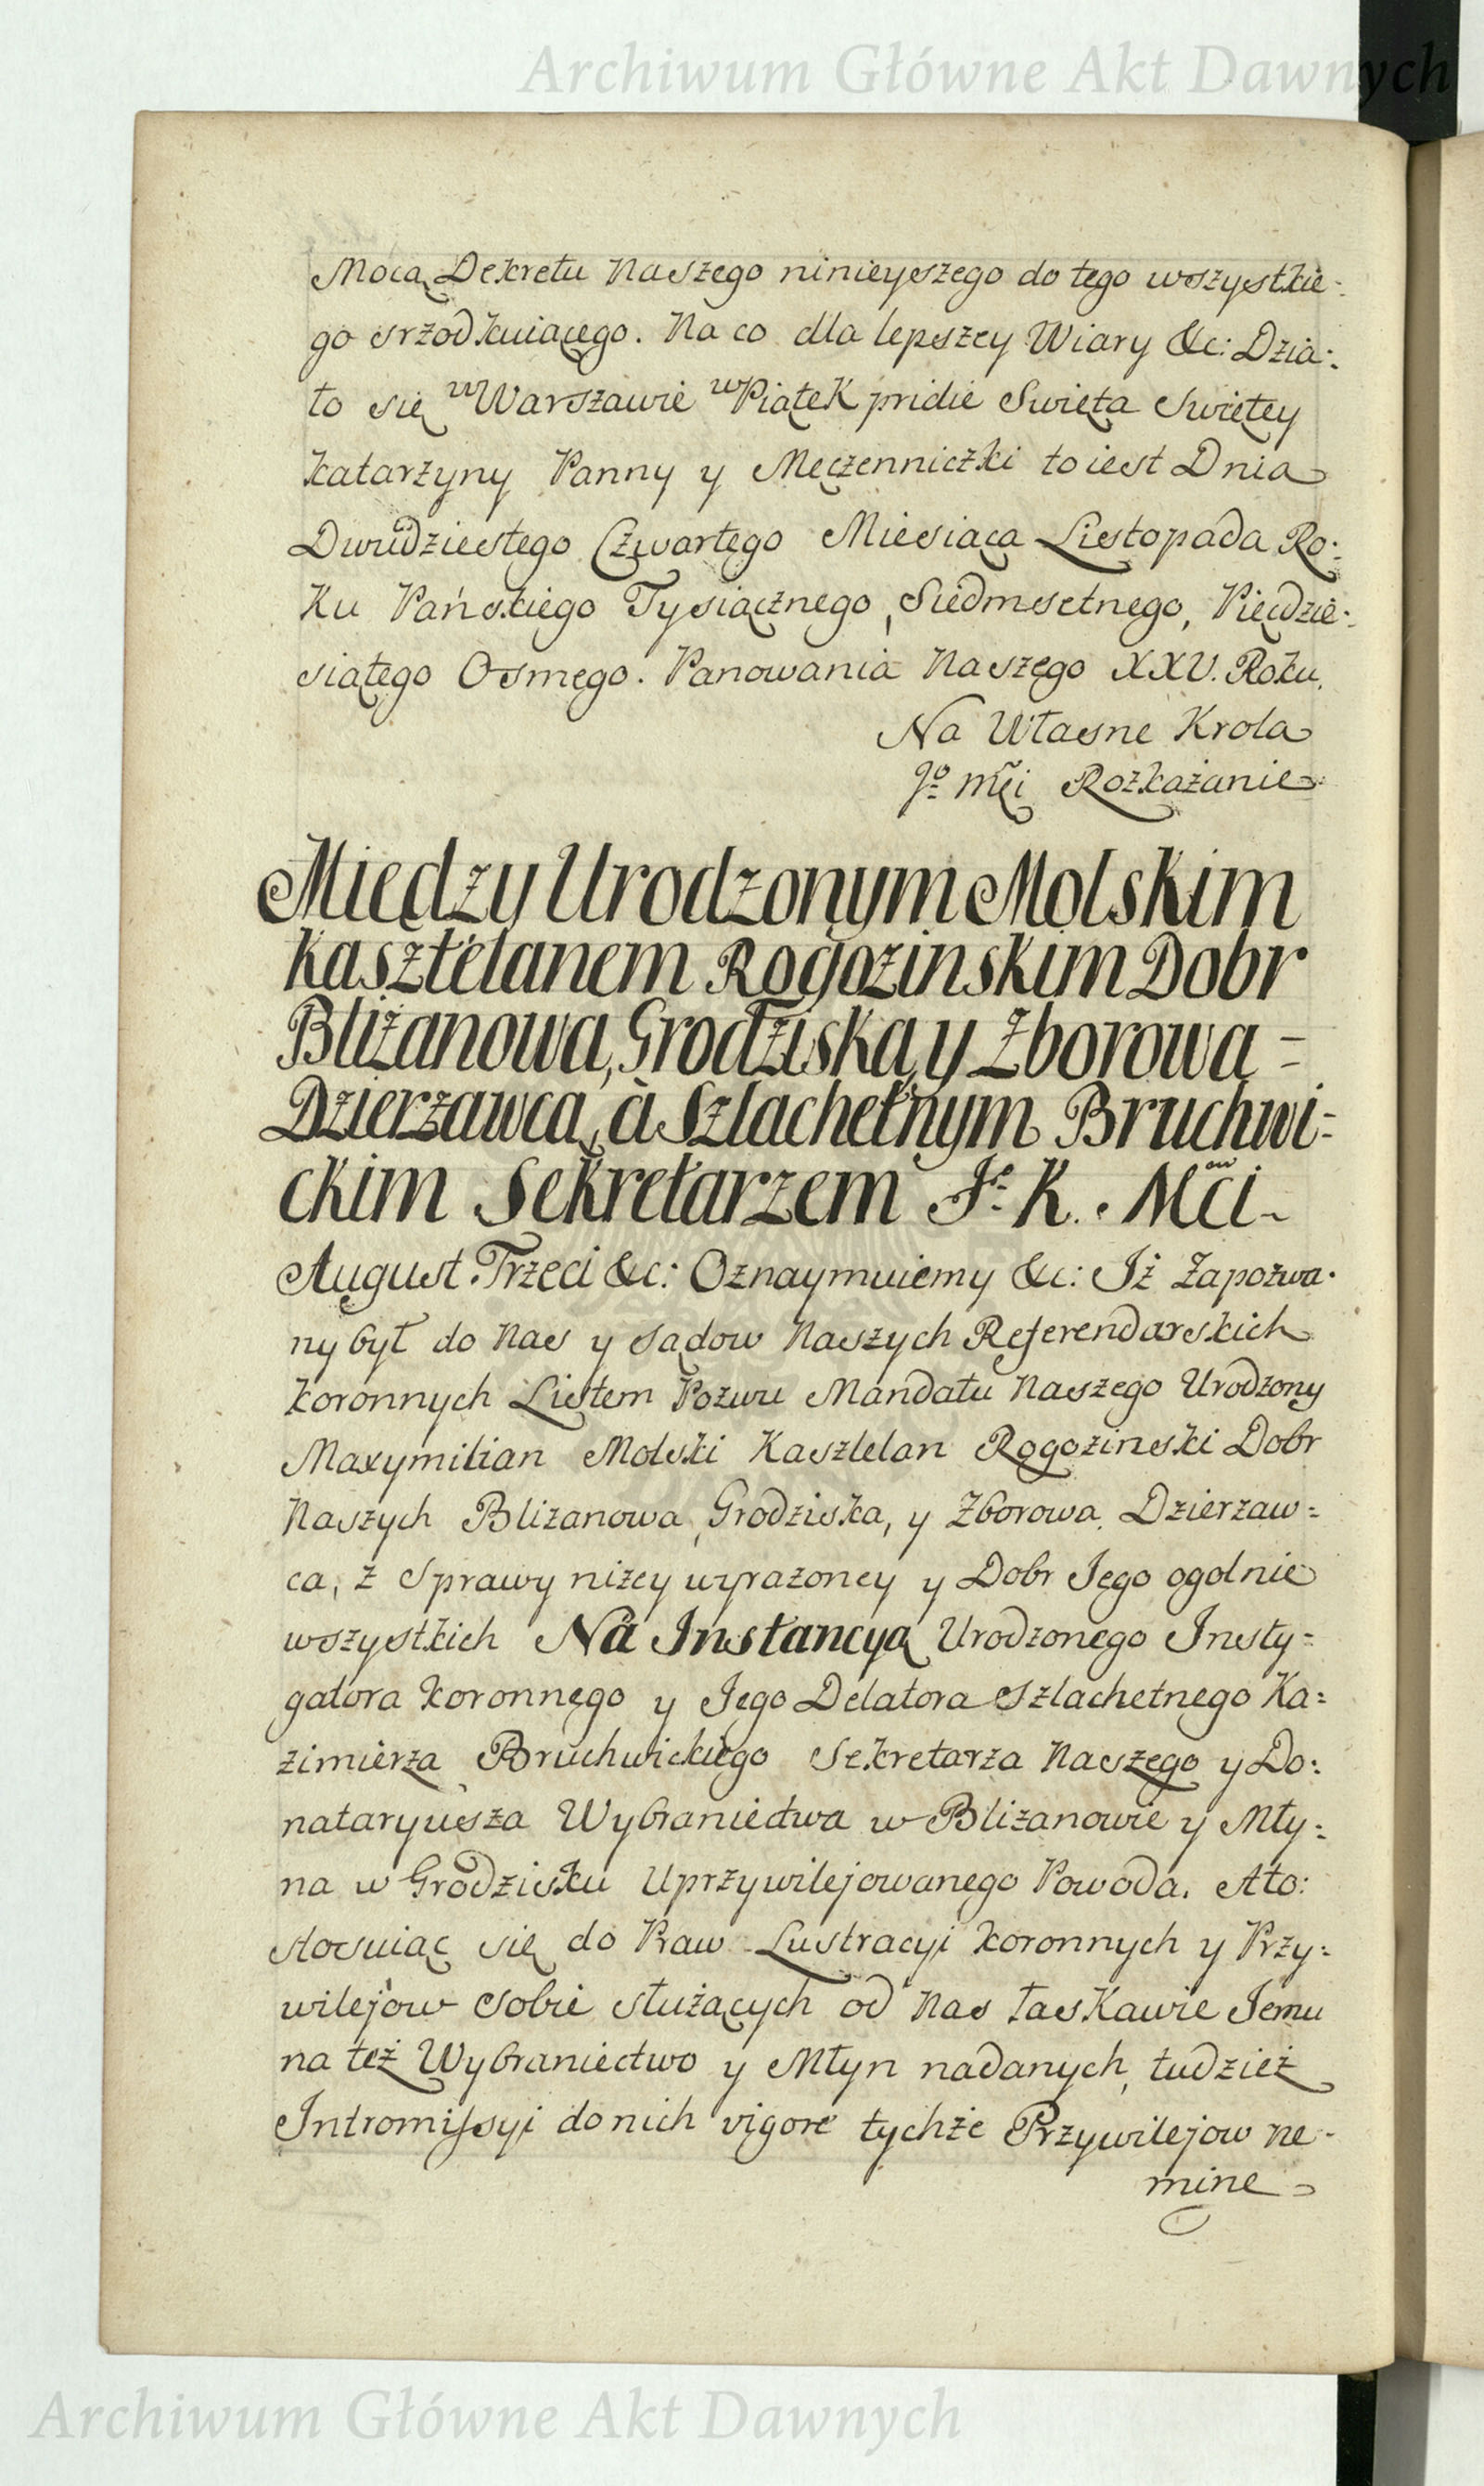 Archiwum Główne Akt Dawnych
Mocą Dekretu Naszego ninieyszego do tego wszystkie:
go srzodkuiącego. Na co dla lepszey Wiary &c: Dzia:
ło się w Warszawie w Piątek pridie Swięta Swiętey
Katarzyny Panny y Męczenniczki to iest Dnia
Dwudziestego Czwartego Miesiąca Listopada Ro:
Ku Pańskiego Tysiącznego, Siedmsetnego, Pięcdzie:
siątego Osmego. Panowania Naszego XXV. Roku.
Na Własne Krola
Jº Mci Rozkazanie
Między Urodzonym Molskim
Kasztelanem Rogozinskim Dobr
Bliżanowa, Grodziska, y Zborowa =
Dzierzawcą, à Szlachetnym Bruchwi=
ckim Sekretarzem Jº K. Mci
August Trzeci &c: Oznaymuiemy &c: Iż Zapozwa.
ny był do Nas y Sądow Naszych Referendarskich
Koronnych Listem Pozwu Mandatu Naszego Urodzony
Maxymilian Molski Kasztelan Rogozinski Dobr
Naszych Bliżanowa, Grodziska, y Zborowa Dzierzaw=
ca, z Sprawy niżey wyrażoney y Dobr Jego ogolnie
wszystkich Na Instancyą Urodzonego Insty=
gatora Koronnego y Jego Delatora Szlachetnego Ka=
zimierza Bruchwickiego Sekretarza Naszego y Do:
nataryusza Wybraniectwa w Bliżanowie y Mły:
na w Grodzisku Uprzywilejowanego Powoda. Ato:
stosuiąc się do Praw Lustracyi Koronnych y Przy:
wilejow sobie służących od Nas łaskawie Jemu
na też Wybraniectwo y Młyn nadanych, tudzież
Intromissyi do nich vigore tychże Przywilejow ne-
mine
Archiwum Główne Akt Dawnych